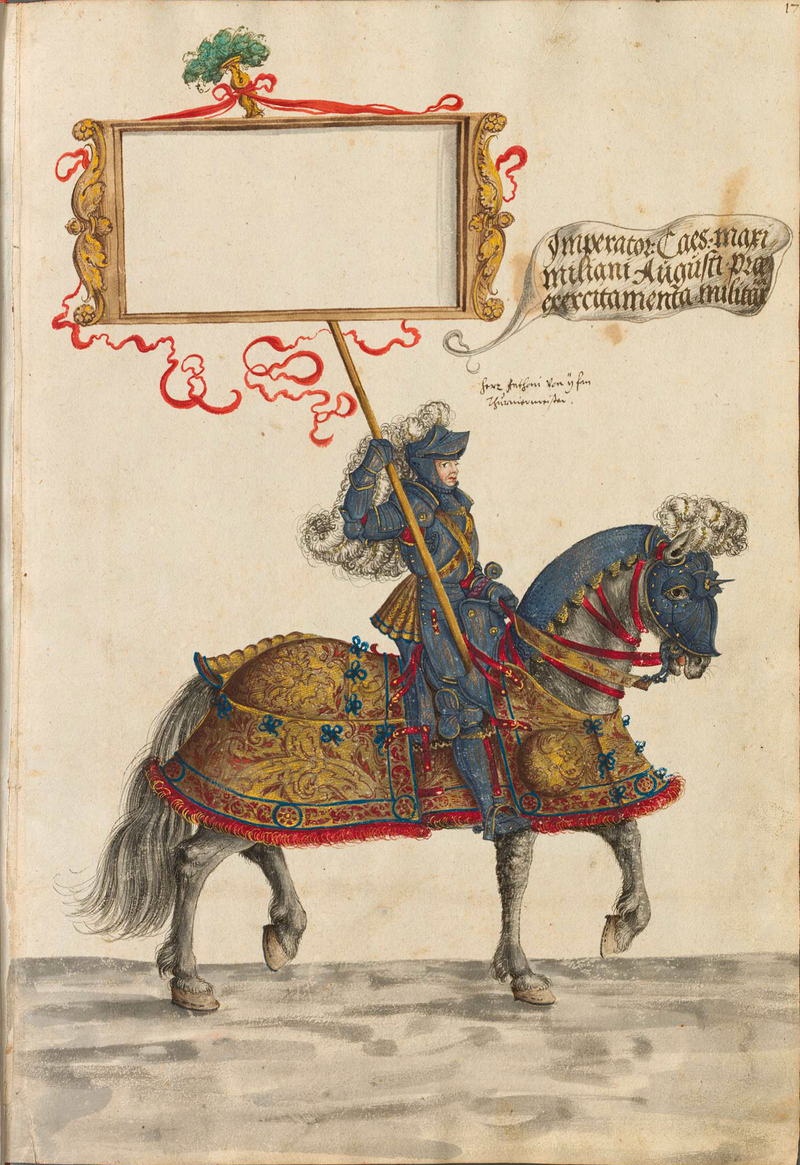 17
Imperator: Caes: maxi
miliani Augusti præ
exercitamenta militiæ
herr Anthoni von yfan
Thurniermeister.